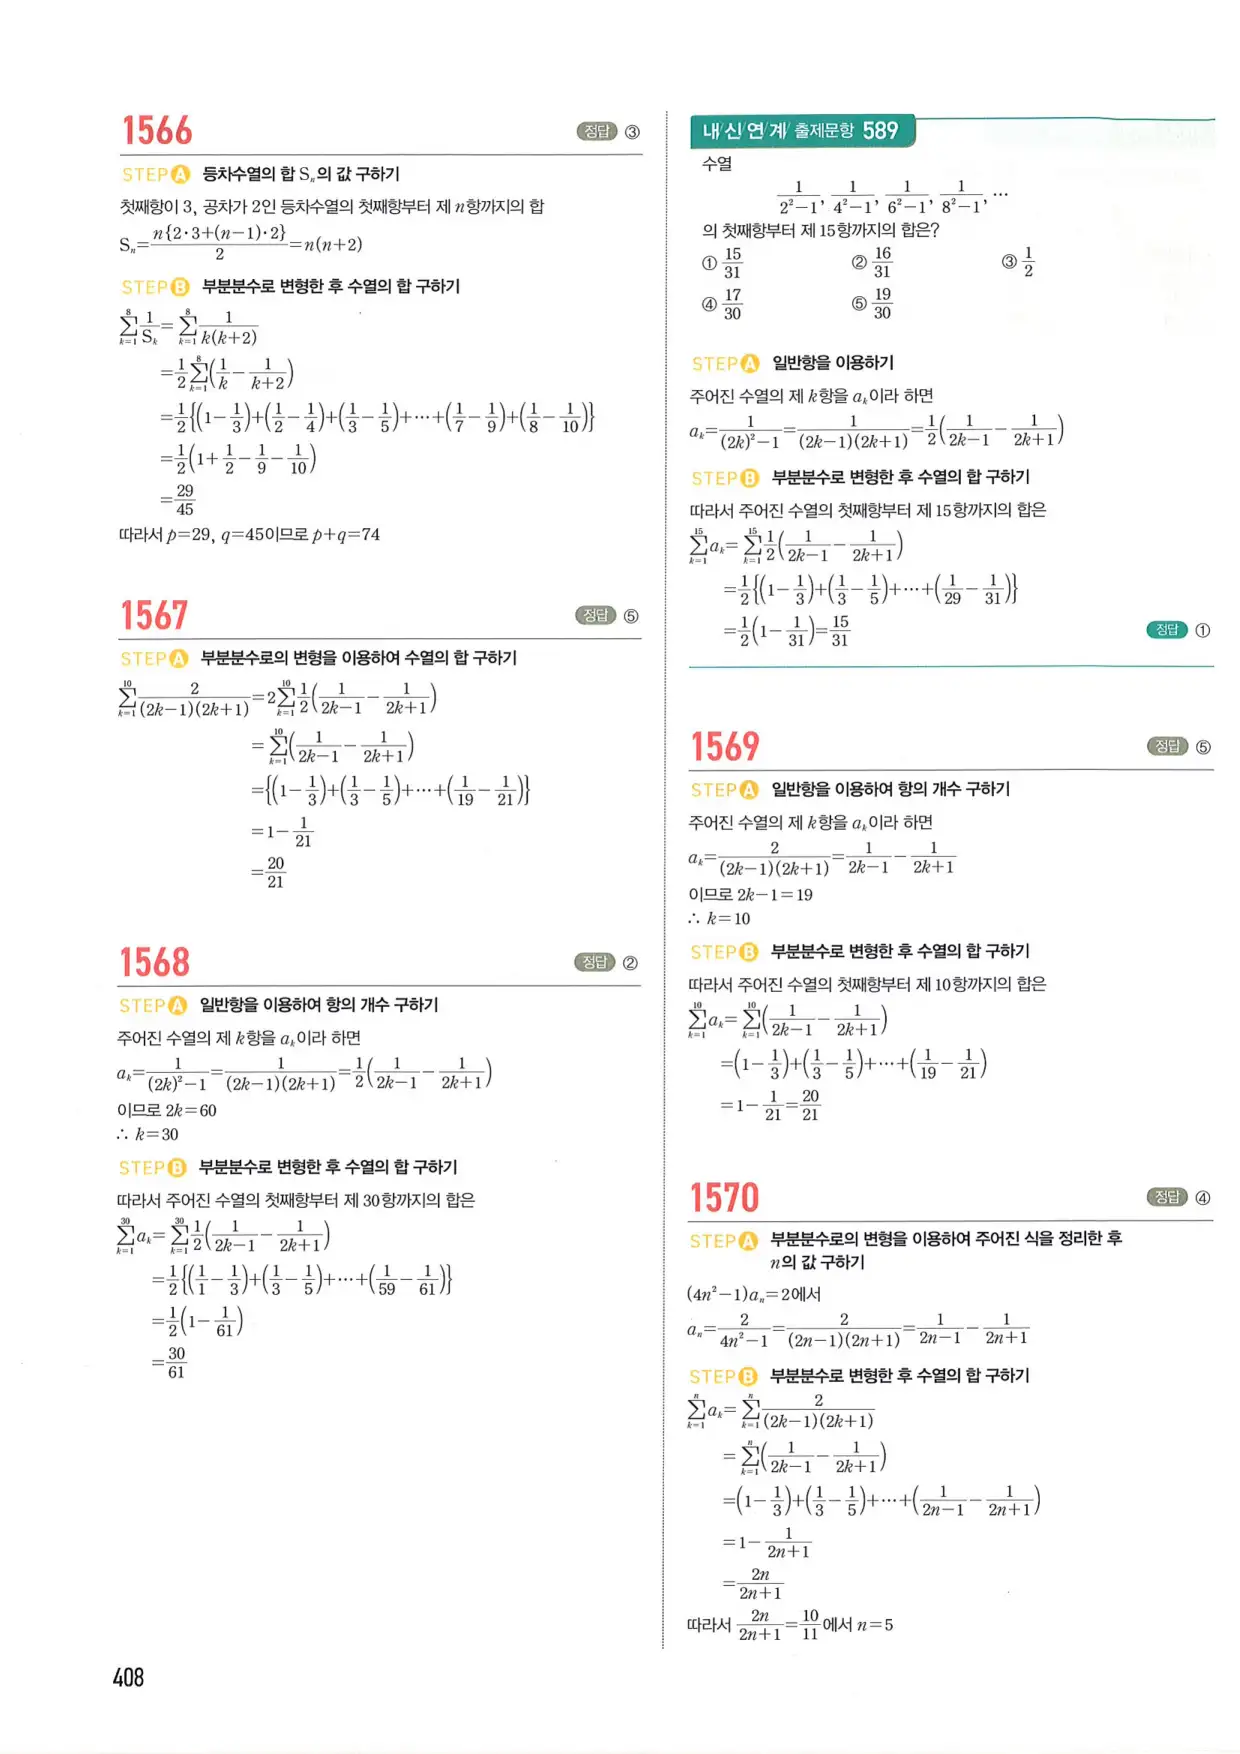 1566
정답 ③
STEP A 등차수열의 합 Sₙ의 값 구하기
첫째항이 3, 공차가 2인 등차수열의 첫째항부터 제 n항까지의 합
Sₙ=n{2·3+(n−1)·2}/2=n(n+2)
STEP B 부분분수로 변형한 후 수열의 합 구하기
∑_{k=1}^{8} 1/Sₖ=∑_{k=1}^{8} 1/k(k+2)
=1/2 ∑_{k=1}^{8}(1/k−1/(k+2))
=1/2{(1−1/3)+(1/2−1/4)+(1/3−1/5)+⋯+(1/7−1/9)+(1/8−1/10)}
=1/2(1+1/2−1/9−1/10)
=29/45
따라서 p=29, q=45이므로 p+q=74
1567
정답 ⑤
STEP A 부분분수로의 변형을 이용하여 수열의 합 구하기
∑_{k=1}^{10} 2/(2k−1)(2k+1)=2∑_{k=1}^{10} 1/2(1/(2k−1)−1/(2k+1))
=∑_{k=1}^{10}(1/(2k−1)−1/(2k+1))
={(1−1/3)+(1/3−1/5)+⋯+(1/19−1/21)}
=1−1/21
=20/21
1568
정답 ②
STEP A 일반항을 이용하여 항의 개수 구하기
주어진 수열의 제 k항을 aₖ이라 하면
aₖ=1/((2k)²−1)=1/(2k−1)(2k+1)=1/2(1/(2k−1)−1/(2k+1))
이므로 2k=60
∴ k=30
STEP B 부분분수로 변형한 후 수열의 합 구하기
따라서 주어진 수열의 첫째항부터 제 30항까지의 합은
∑_{k=1}^{30} aₖ=∑_{k=1}^{30} 1/2(1/(2k−1)−1/(2k+1))
=1/2{(1/1−1/3)+(1/3−1/5)+⋯+(1/59−1/61)}
=1/2(1−1/61)
=30/61
내/신/연/계/ 출제문항 589
수열
1/(2²−1), 1/(4²−1), 1/(6²−1), 1/(8²−1), ⋯
의 첫째항부터 제 15항까지의 합은?
① 15/31 ② 16/31 ③ 1/2
④ 17/30 ⑤ 19/30
STEP A 일반항을 이용하기
주어진 수열의 제 k항을 aₖ이라 하면
aₖ=1/((2k)²−1)=1/(2k−1)(2k+1)=1/2(1/(2k−1)−1/(2k+1))
STEP B 부분분수로 변형한 후 수열의 합 구하기
따라서 주어진 수열의 첫째항부터 제 15항까지의 합은
∑_{k=1}^{15} aₖ=∑_{k=1}^{15} 1/2(1/(2k−1)−1/(2k+1))
=1/2{(1−1/3)+(1/3−1/5)+⋯+(1/29−1/31)}
=1/2(1−1/31)=15/31
정답 ①
1569
정답 ⑤
STEP A 일반항을 이용하여 항의 개수 구하기
주어진 수열의 제 k항을 aₖ이라 하면
aₖ=2/(2k−1)(2k+1)=1/(2k−1)−1/(2k+1)
이므로 2k−1=19
∴ k=10
STEP B 부분분수로 변형한 후 수열의 합 구하기
따라서 주어진 수열의 첫째항부터 제 10항까지의 합은
∑_{k=1}^{10} aₖ=∑_{k=1}^{10}(1/(2k−1)−1/(2k+1))
=(1−1/3)+(1/3−1/5)+⋯+(1/19−1/21)
=1−1/21=20/21
1570
정답 ④
STEP A 부분분수로의 변형을 이용하여 주어진 식을 정리한 후
n의 값 구하기
(4n²−1)aₙ=2에서
aₙ=2/(4n²−1)=2/(2n−1)(2n+1)=1/(2n−1)−1/(2n+1)
STEP B 부분분수로 변형한 후 수열의 합 구하기
∑_{k=1}^{n} aₖ=∑_{k=1}^{n} 2/(2k−1)(2k+1)
=∑_{k=1}^{n}(1/(2k−1)−1/(2k+1))
=(1−1/3)+(1/3−1/5)+⋯+(1/(2n−1)−1/(2n+1))
=1−1/(2n+1)
=2n/(2n+1)
따라서 2n/(2n+1)=10/11에서 n=5
408